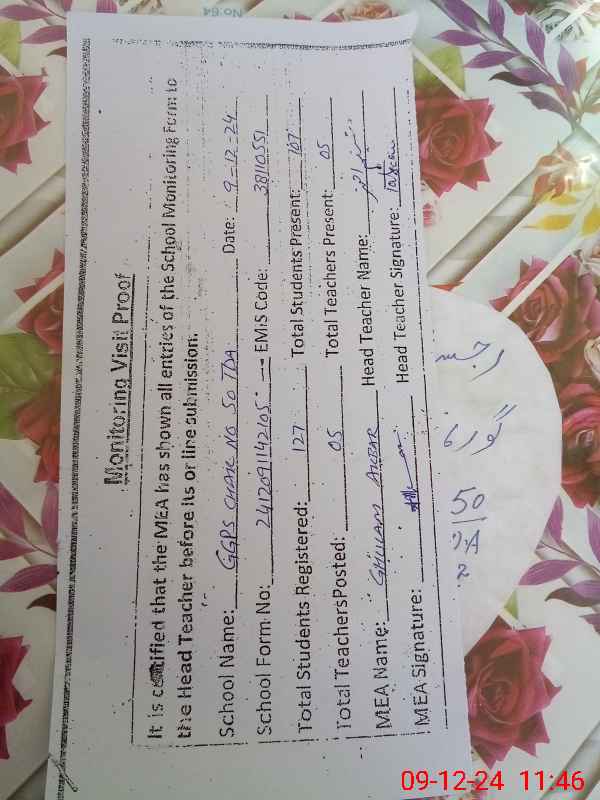 No:64
Monitoring Visit Proof
It is certified that the MEA has shown all entries of the School Monitoring Form to
the Head Teacher before its on line submission.
School Name: GGPS CHAK NO 50 TDA Date: 9-12-24
School Form No: 2412091142105 EMIS Code: 38110551
Total Students Registered: 127 Total Students Present: 107
Total Teachers Posted: 05 Total Teachers Present: 05
MEA Name: GHULAM AKBAR Head Teacher Name:
MEA Signature: Head Teacher Signature:
50
09-12-24 11:46